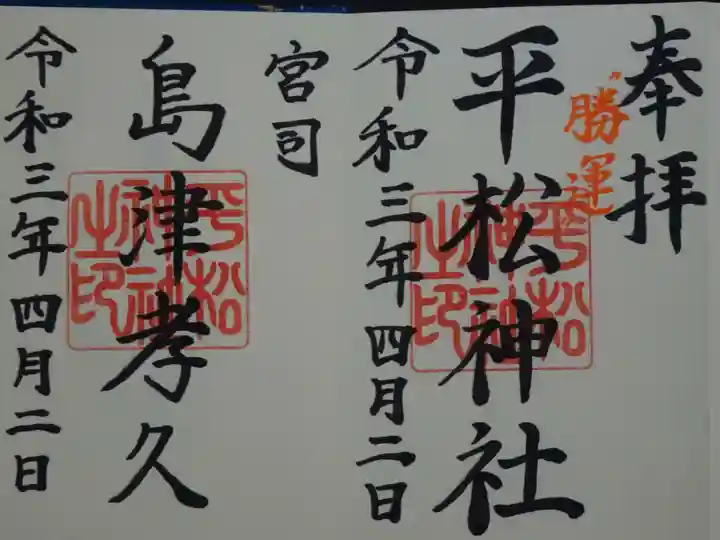 奉拝
勝運
平松神社
平松神社之印
令和三年四月二日
宮司
島津孝久
平松神社之印
令和三年四月二日